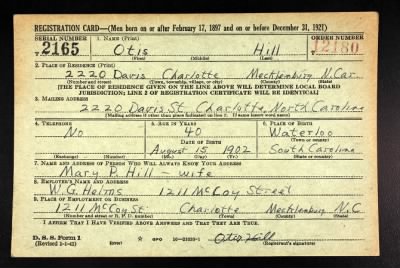 REGISTRATION CARD—(Men born on or after February 17, 1897 and on or before December 31, 1921)
SERIAL NUMBER 1. NAME (Print) ORDER NUMBER
T 2165 Otis Hill T 12180
(First) (Middle) (Last)
2. PLACE OF RESIDENCE (Print)
2220 Davis Charlotte Mecklenburg N. Car.
(Number and street) (Town, township, village, or city) (County) (State)
[THE PLACE OF RESIDENCE GIVEN ON THE LINE ABOVE WILL DETERMINE LOCAL BOARD
JURISDICTION; LINE 2 OF REGISTRATION CERTIFICATE WILL BE IDENTICAL]
3. MAILING ADDRESS
2220 Davis St. Charlotte, North Carolina
[Mailing address if other than place indicated on line 2. If same insert word same]
4. TELEPHONE 5. AGE IN YEARS 6. PLACE OF BIRTH
No 40 Waterloo
DATE OF BIRTH (Town or county)
August 15 1902 South Carolina
(Exchange) (Number) (Mo.) (Day) (Yr.) (State or country)
7. NAME AND ADDRESS OF PERSON WHO WILL ALWAYS KNOW YOUR ADDRESS
Mary P. Hill - wife
8. EMPLOYER'S NAME AND ADDRESS
W. G. Helms 1211 McCoy Street
9. PLACE OF EMPLOYMENT OR BUSINESS
1211 McCoy St Charlotte Mecklenburg N.C
(Number and street or R. F. D. number) (Town) (County) (State)
I AFFIRM THAT I HAVE VERIFIED ABOVE ANSWERS AND THAT THEY ARE TRUE.
D. S. S. Form 1
(Revised 1-1-42) (over) GPO 16—21630-1 Otis Hill
(Registrant's signature)